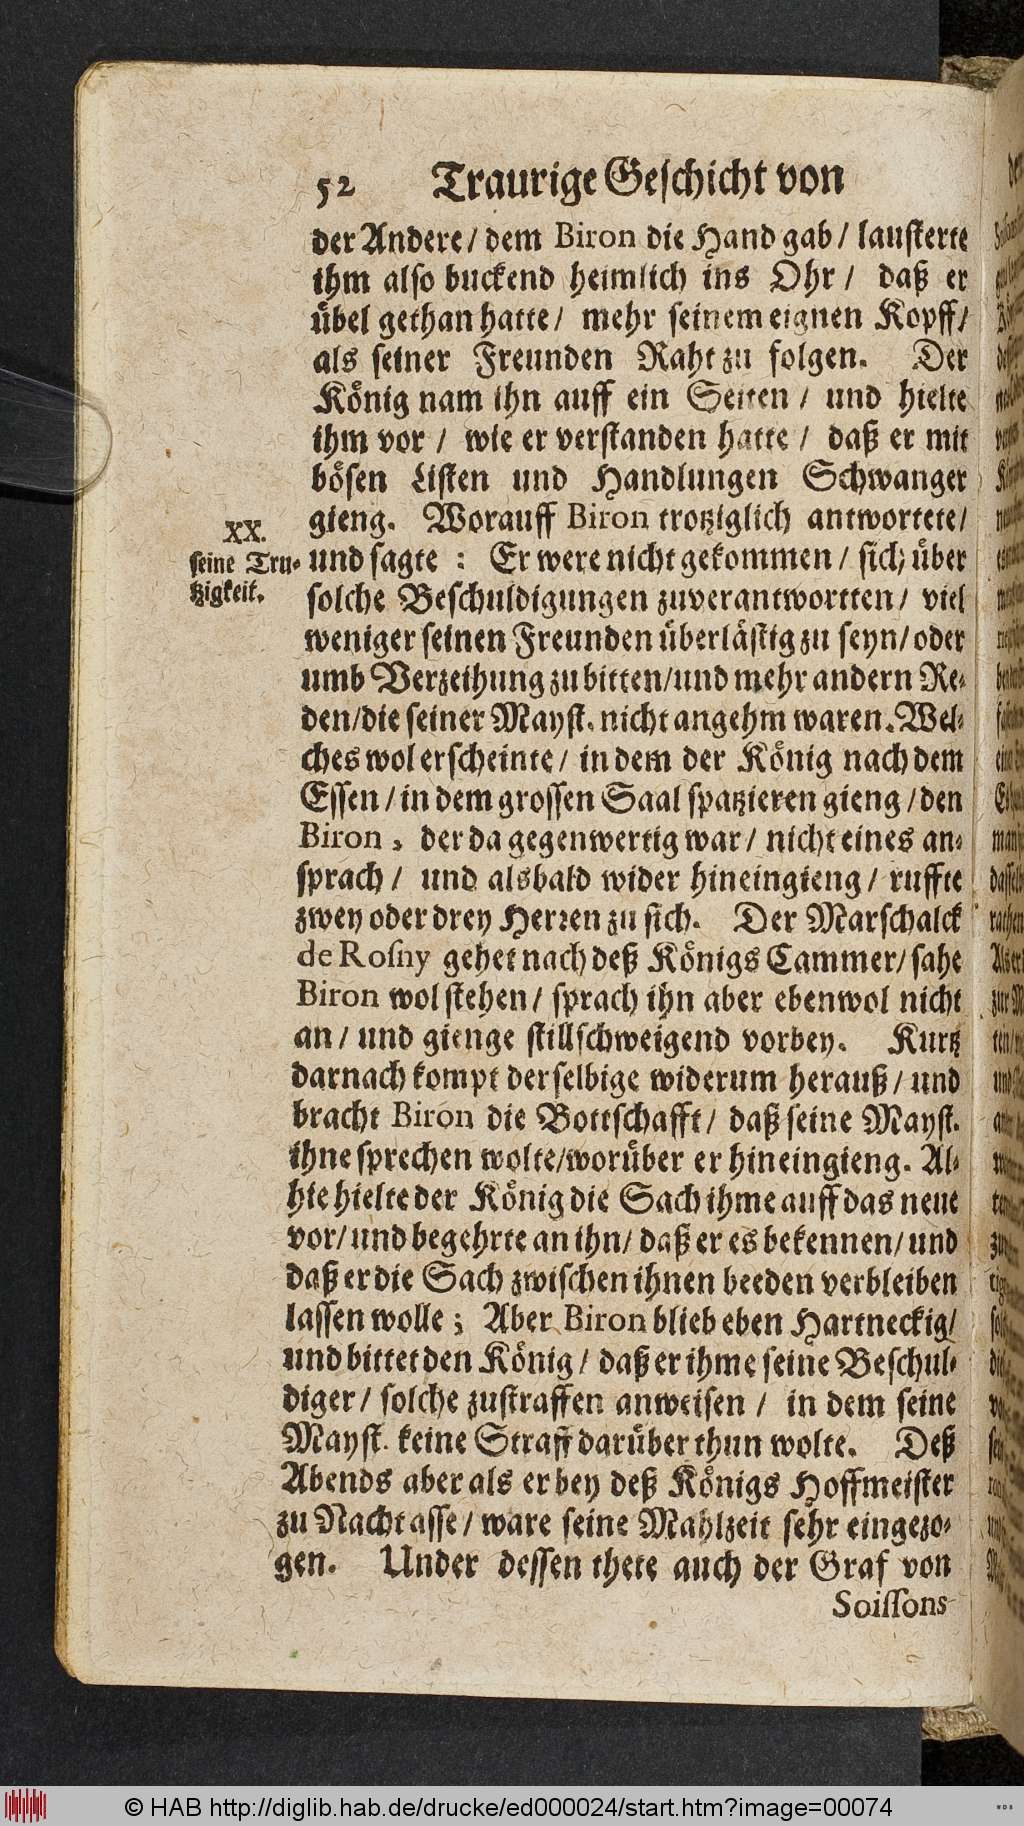 52 Traurige Geschicht von
der Andere / dem Biron die Hand gab / lausterte
ihm also buckend heimlich ins Ohr / daß er
übel gethan hatte / mehr seinem eignen Kopff /
als seiner Freunden Raht zu folgen. Der
König nam ihn auff ein Seiten / und hielte
ihm vor / wie er verstanden hatte / daß er mit
bösen Listen und Handlungen Schwanger
gieng. Worauff Biron trotziglich antwortete /
XX.
seine Tru-
tzigkeit.
und sagte : Er were nicht gekommen / sich über
solche Beschuldigungen zuverantwortten / viel
weniger seinen Freunden überlästig zu seyn / oder
umb Verzeihung zu bitten / und mehr andern Re-
den / die seiner Mayst. nicht angehm waren. Wel-
ches wol erscheinte / in dem der König nach dem
Essen / in dem grossen Saal spatzieren gieng / den
Biron, der da gegenwertig war / nicht eines an-
sprach / und alsbald wider hineingieng / ruffte
zwey oder drey Herren zu sich. Der Marschalck
de Rosny gehet nach deß Königs Cammer / sahe
Biron wol stehen / sprach ihn aber ebenwol nicht
an / und gienge stillschweigend vorbey. Kurtz
darnach kompt derselbige widerum herauß / und
bracht Biron die Bottschafft / daß seine Mayst.
ihne sprechen wolte / worüber er hineingieng. Al-
hie hielte der König die Sach ihme auff das neue
vor / und begehrte an ihn / daß er es bekennen / und
daß er die Sach zwischen ihnen beeden verbleiben
lassen wolle ; Aber Biron blieb eben Hartneckig /
und bittet den König / daß er ihme seine Beschul-
diger / solche zustraffen anweisen / in dem seine
Mayst. keine Straff darüber thun wolte. Deß
Abends aber als er bey deß Königs Hoffmeister
zu Nacht asse / ware seine Mahlzeit sehr eingezo-
gen. Under dessen thete auch der Graf von
Soissons
© HAB http://diglib.hab.de/drucke/ed000024/start.htm?image=00074